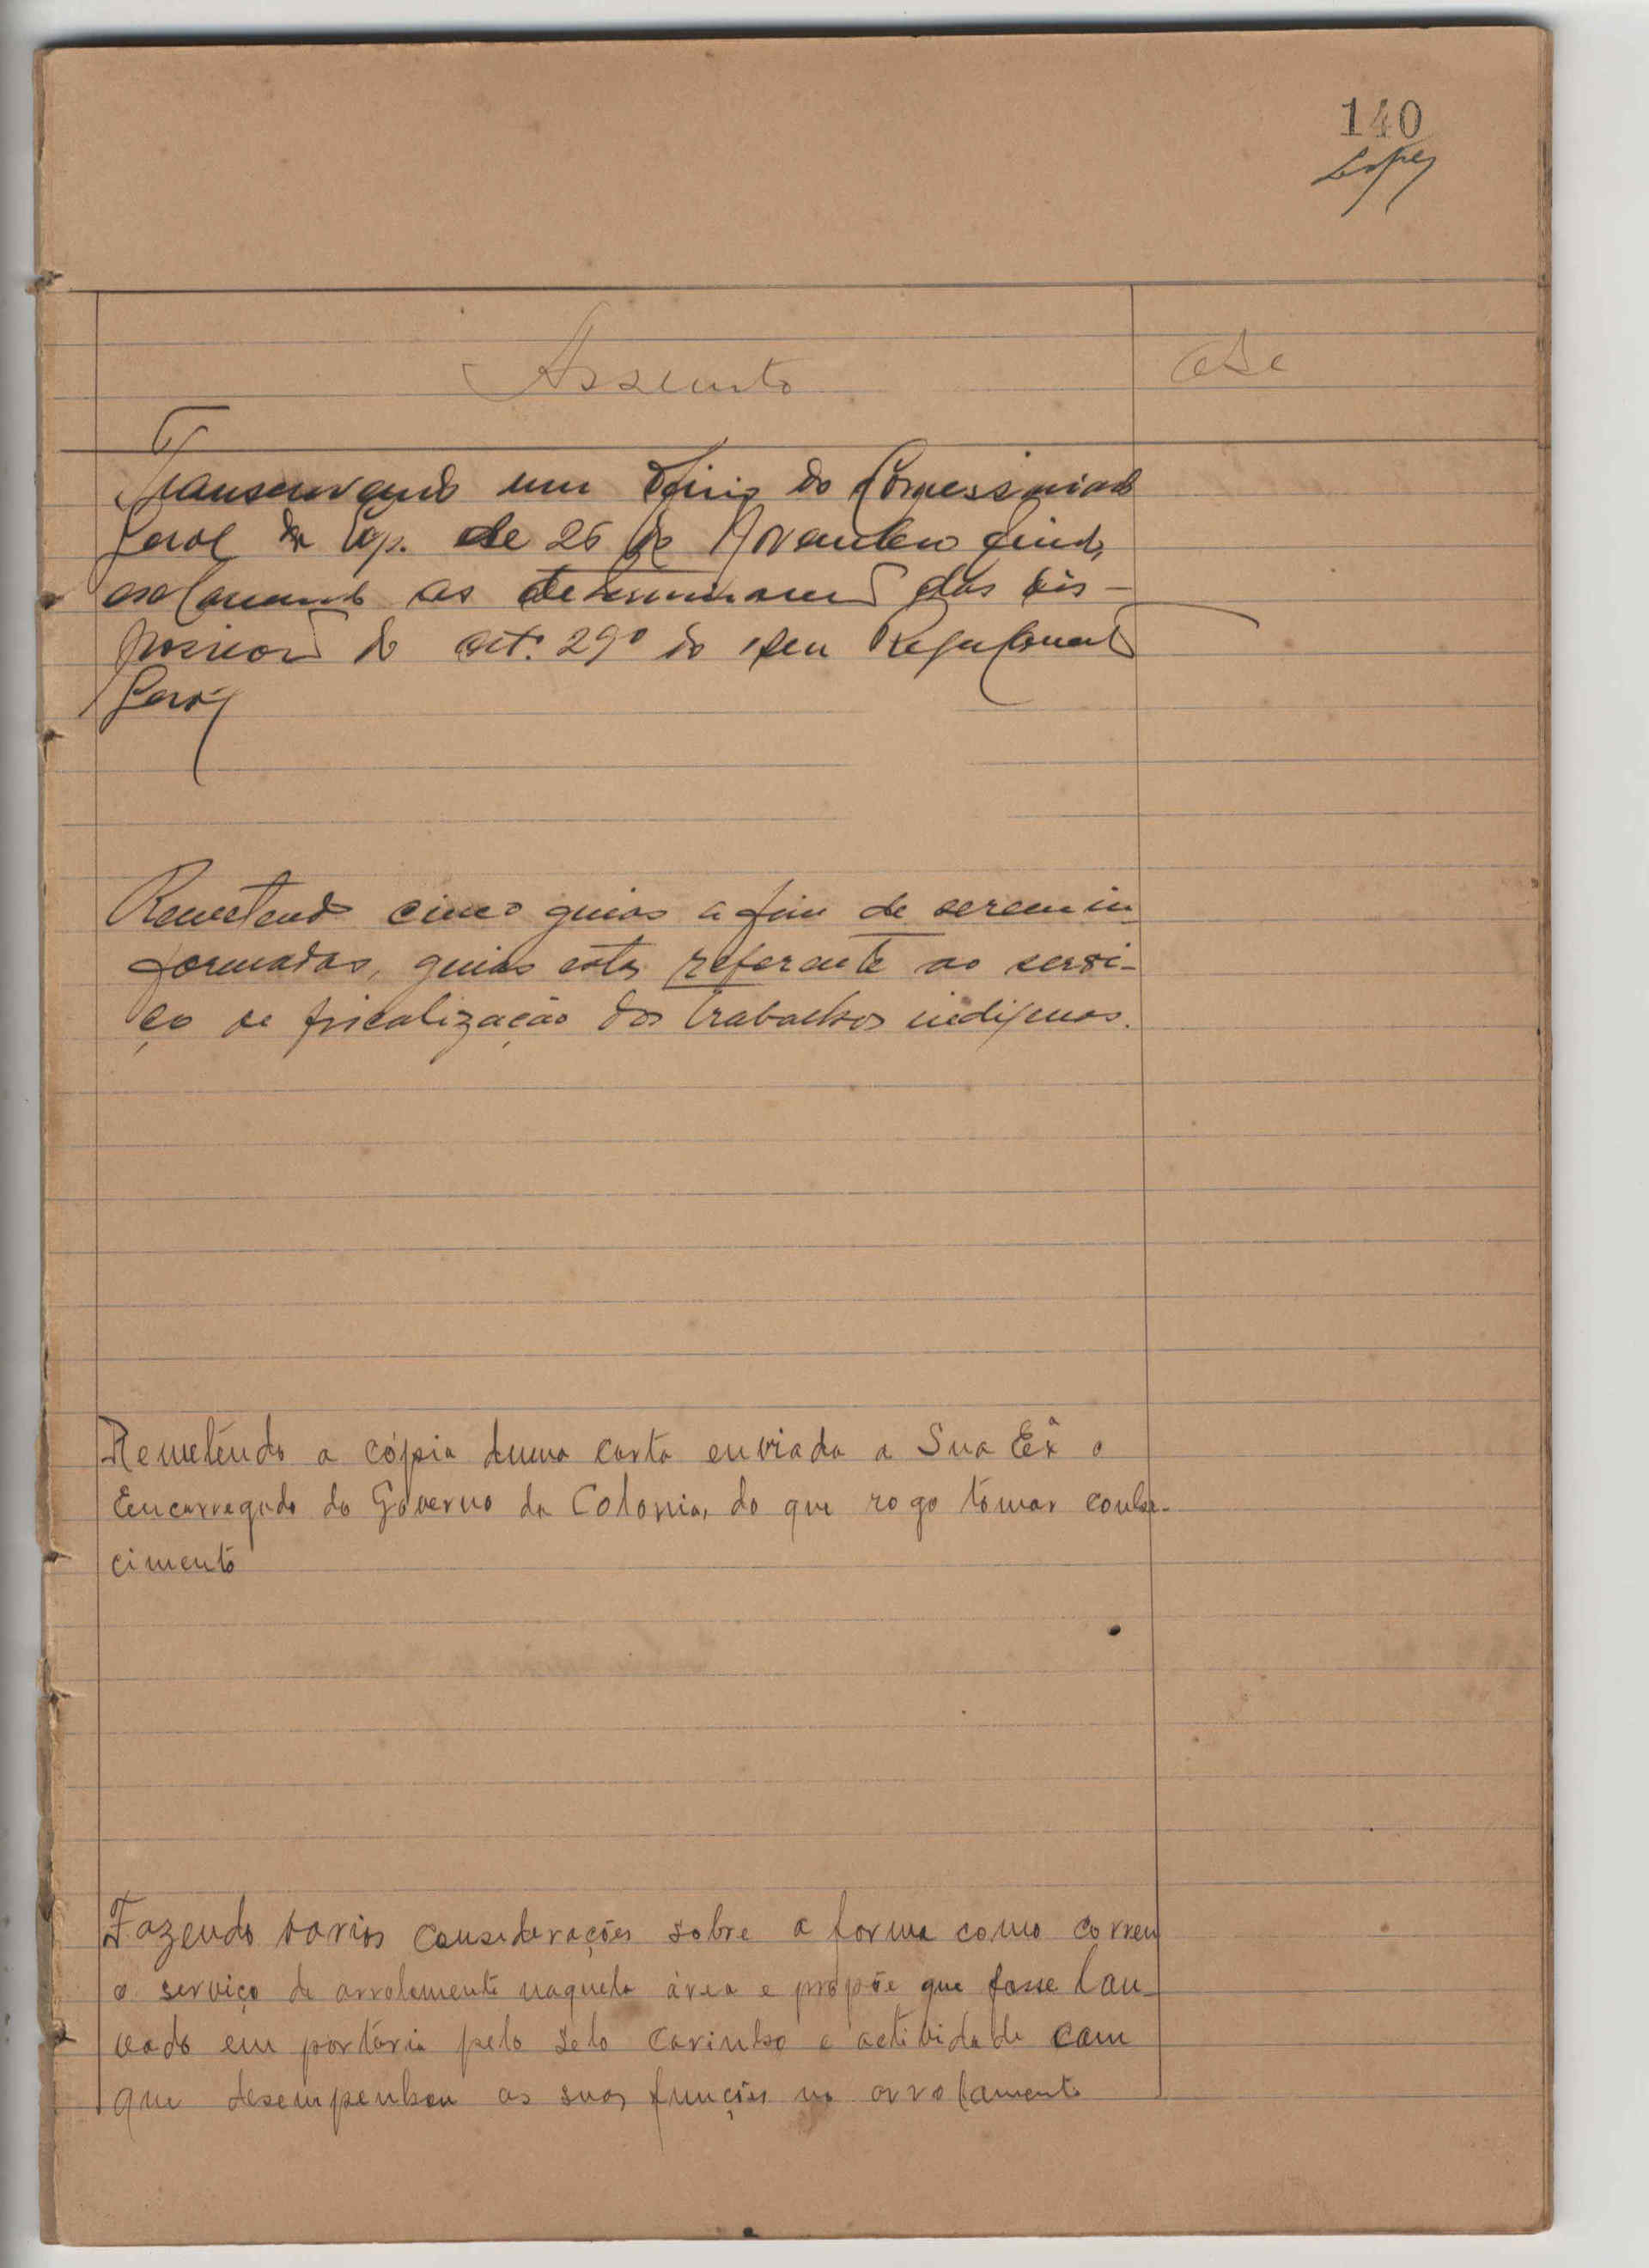 140
Lopes
Assunto
Transcrevendo um oficio do Comessariado
Geral da Exp. de 26 de Novembro findo,
as determinacoes das dis-
posicoes do art. 29º do seu Regulamento
Geral
Remetendo cinco guias a fim de serem in
formadas, guias estas referente ao servi-
ço de fiscalização dos trabalhos indigenas.
Remeténdo a cópia duma carta enviada a Sua Exª o
Encarregado do Governo da Colonia, do que rogo tomar conhe-
cimento
Fazendo varias considerações sobre a forma como correu
o serviço de arrolamento naquela área e propõe que fosse lou-
vado em portaria pelo zelo carinho e actividade com
que desempenhou as suas funções no arrolamento